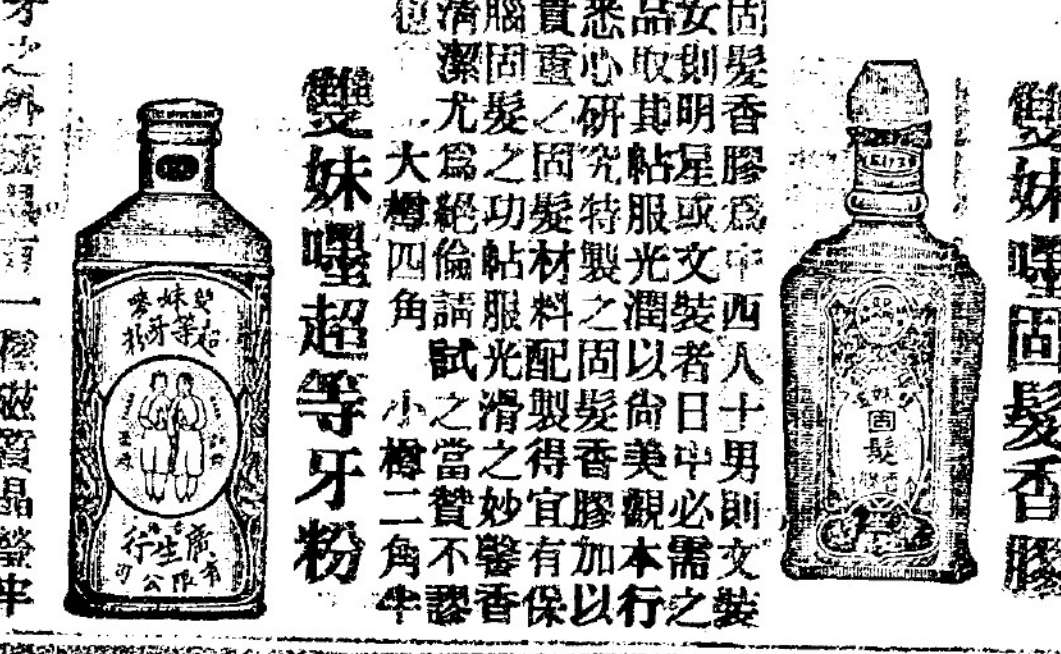 雙妹嚜固髮香膠
固髮
固髮香膠爲中西人士男則文裝
女則明星或文裝者日中必需之
品取其帖服光潤以尙美觀本行
悉心研究特製之固髮香膠加以
貴重之固髮材料配製得宜有保
腦固髮之功帖服光滑之妙馨香
清潔尤爲絕倫請試之當贊不謬
大樽四角 小樽二角半
雙妹嚜超等牙粉
雙妹嚜
超等牙粉
廣生行
有限公司
磁質晶瑩牢